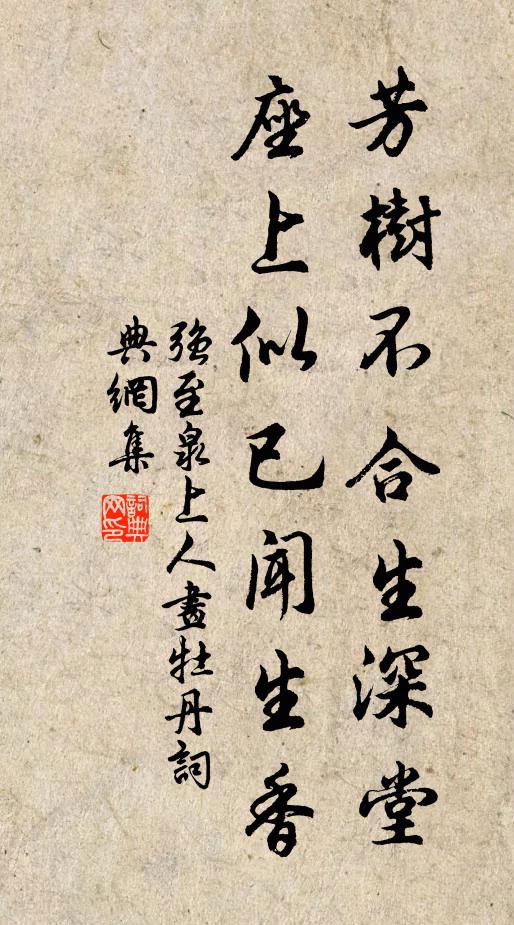 芳樹不合生深堂
座上似已聞生香
強至泉上人畫牡丹詞
典網集
詞典网印